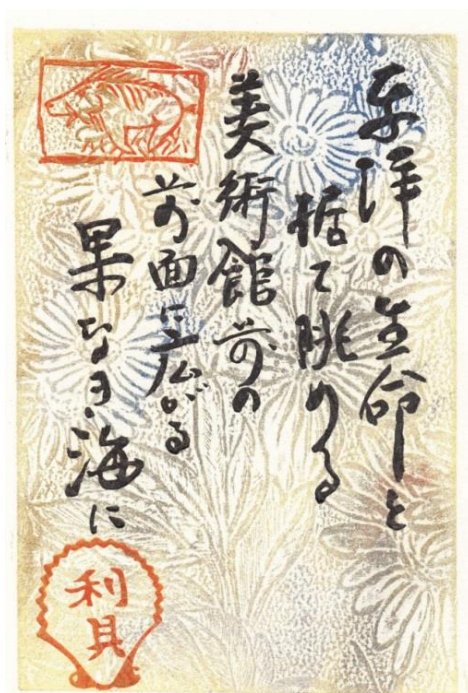 洋の生命と
据て眺める
美術館前の
前面に広がる
果なき海に
利具